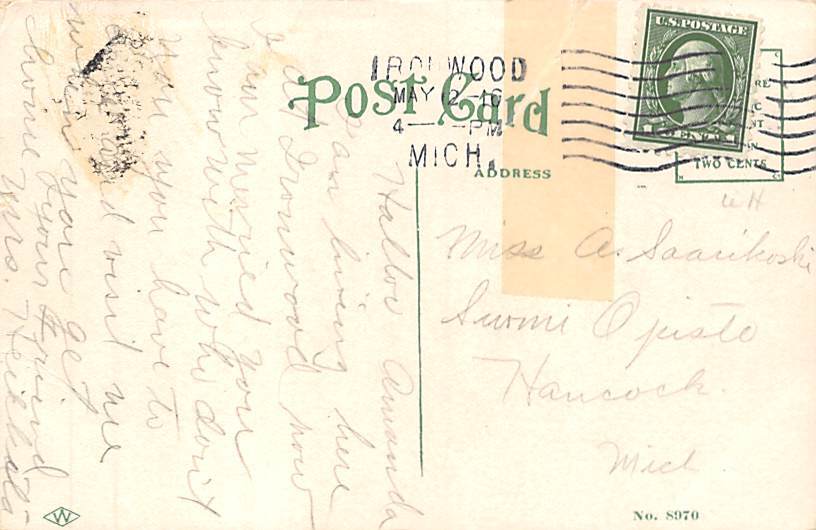 IRONWOOD
MAY 12-16
4— -PM
MICH.
Post Card
ADDRESS
U.S. POSTAGE
TWO CENTS
Miss A. Saarikoski
Suomi Opisto
Hancock.
Mich.
No. 8970
W
Halloo Amanda
I am living here
at Ironwood now
I am married you
know with who don't
you you have to
and visit me
when you get
home your friend
Mrs. Heikkala